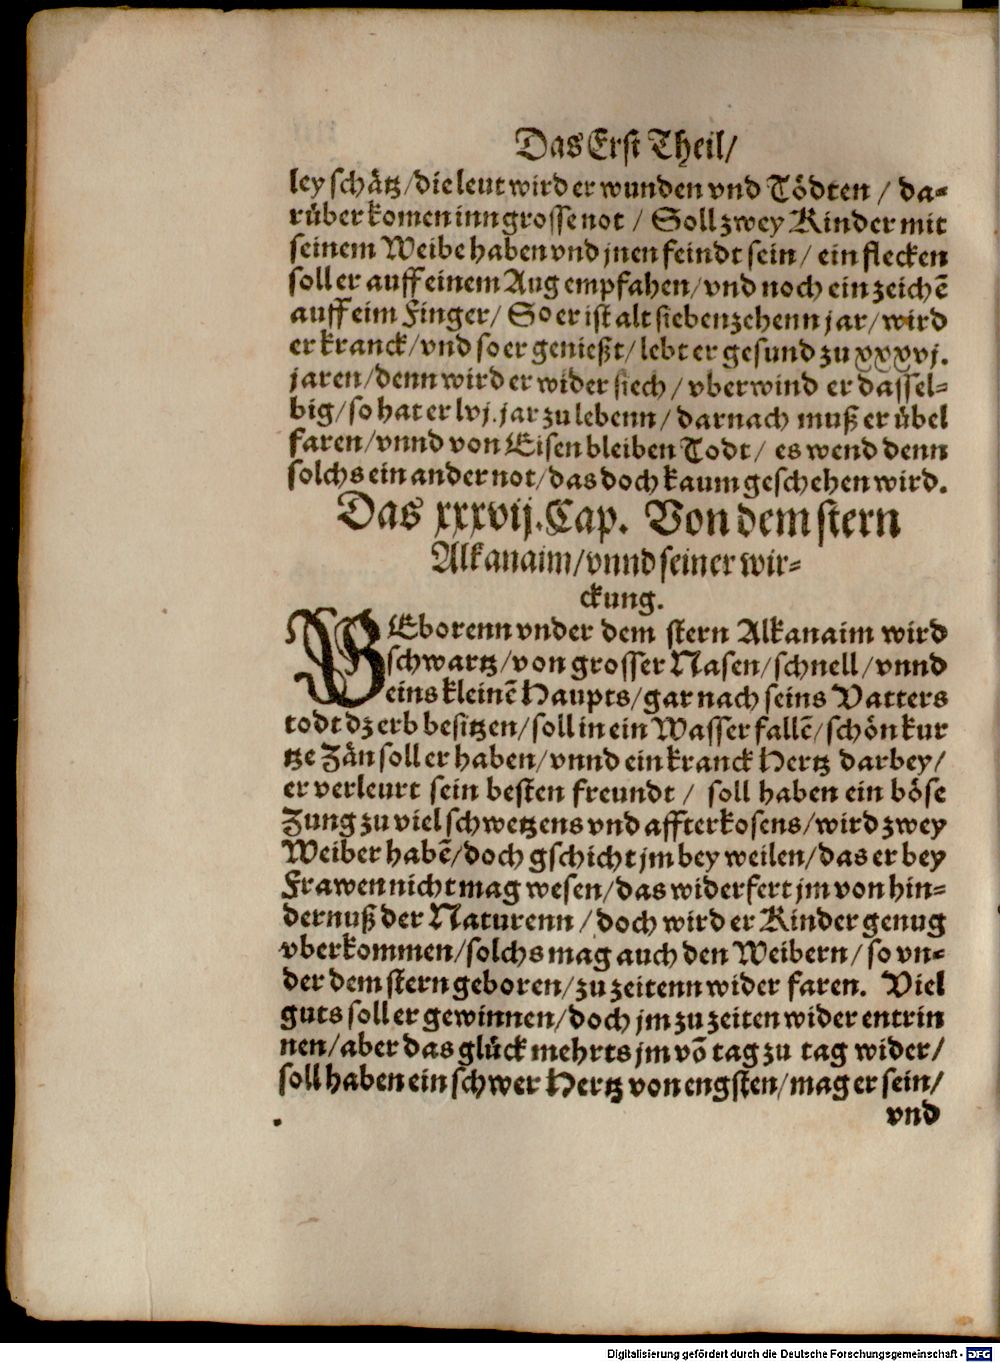 Das Erst Theil/
ley schätz/die leut wird er wunden vnd Tödten / da-
rüber komen inn grosse not / Soll zwey Kinder mit
seinem Weibe haben vnd jnen feindt sein / ein flecken
soll er auff einem Aug empfahen/vnd noch ein zeichē
auff eim Finger/ So er ist alt siebenzehenn jar/wird
er kranck/vnd so er genießt/lebt er gesund zu xxxvj.
jaren/denn wird er wider siech / vberwind er dassel-
big/so hat er lvj.jar zu lebenn/darnach muß er übel
faren/vnnd von Eisen bleiben Todt/ es wend denn
solchs ein ander not/das doch kaum geschehen wird.
Das xxxvij.Cap. Von dem stern
Alkanaim/vnnd seiner wir-
ckung.
GEborenn vnder dem stern Alkanaim wird
schwartz/von grosser Nasen/schnell/vnnd
eins kleinē Haupts/gar nach seins Vatters
todt dz erb besitzen/soll in ein Wasser fallē/schön kur
tze Zän soll er haben/vnnd ein kranck Hertz darbey/
er verleurt sein besten freundt / soll haben ein böse
Zung zu viel schwetzens vnd affterkosens/wird zwey
Weiber habē/doch gschicht jm bey weilen/das er bey
Frawen nicht mag wesen/das widerfert jm von hin-
dernuß der Naturenn /doch wird er Kinder genug
vberkommen/solchs mag auch den Weibern/so vn-
der dem stern geboren/zu zeitenn wider faren. Viel
guts soll er gewinnen/doch jm zu zeiten wider entrin
nen/aber das glück mehrts jm vō tag zu tag wider/
soll haben ein schwer Hertz von engsten/mag er sein/
vnd
Digitalisierung gefördert durch die Deutsche Forschungsgemeinschaft - DFG